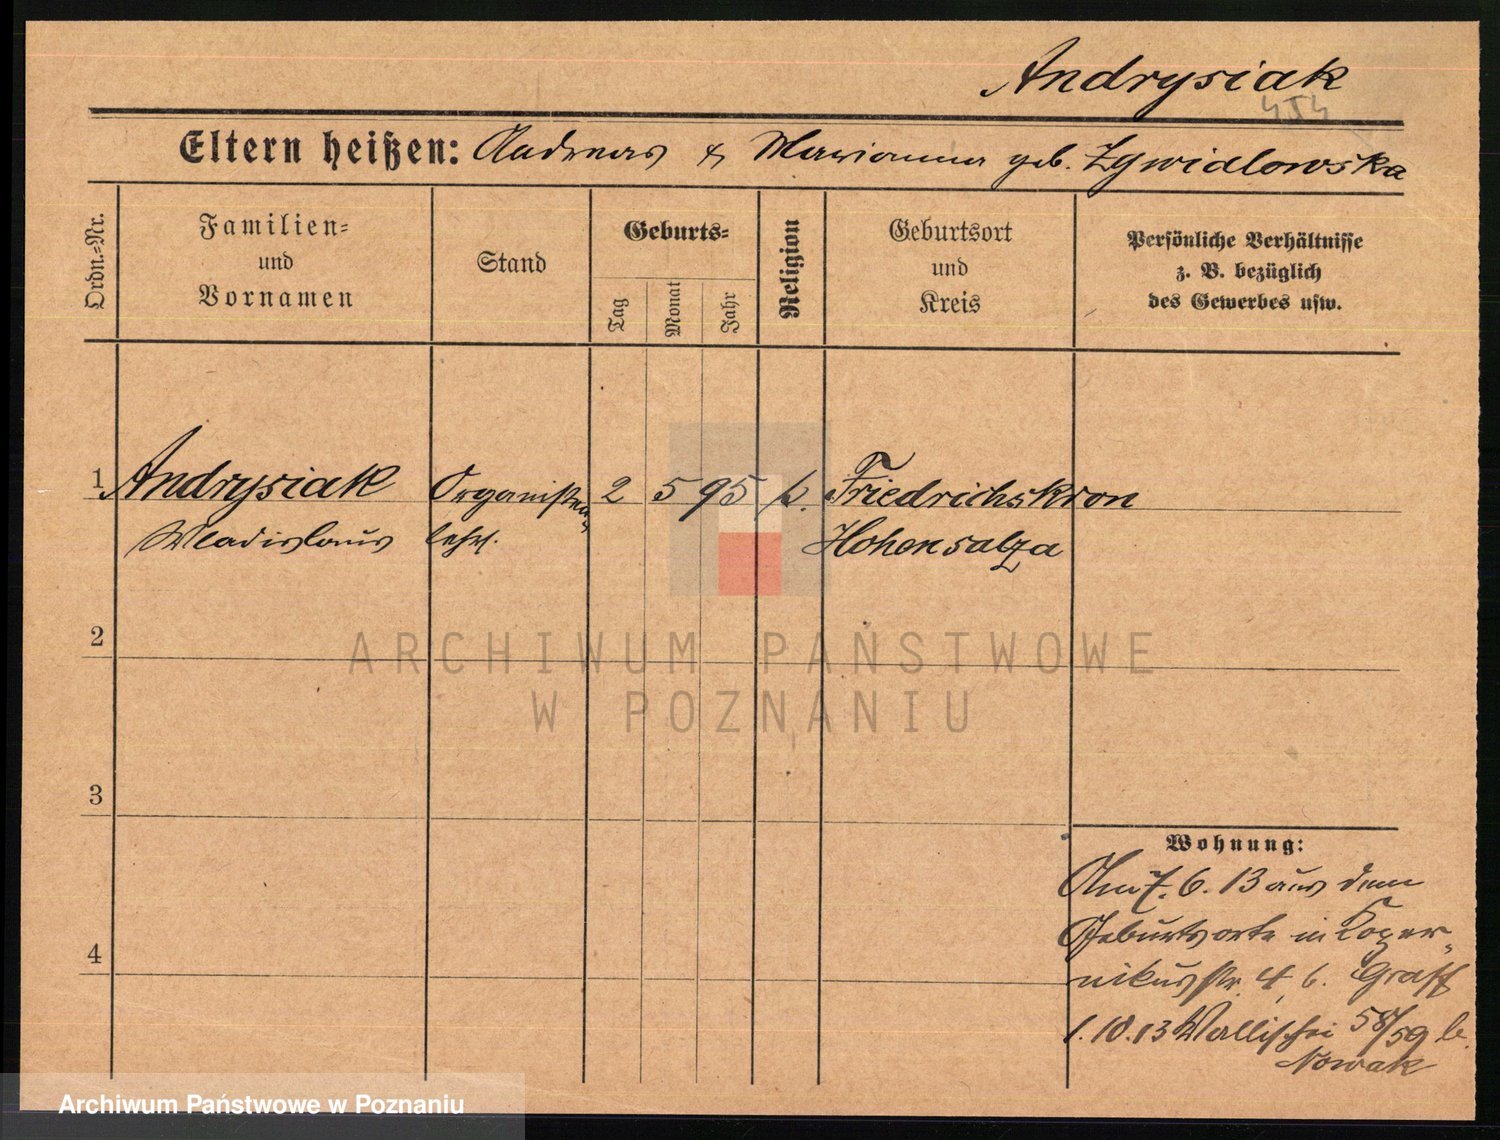 Andrysiak
Eltern heißen: Andreas & Marianna geb. Zgwidlowska
Ordn.-Nr.
Familien-
und
Vornamen
Stand
Geburts-
Tag
Monat
Jahr
Religion
Geburtsort
und
Kreis
Persönliche Verhältnisse
z. B. bezüglich
des Gewerbes usw.
1 Andrysiak Organisten 2 5 95 k. Friedrichskron
Wladislaus lehrl. Hohensalza
2
3
4
Wohnung:
Am 7. 6. 13 aus dem
Geburtsorte in Koper-
nikusstr. 4, b. Graff
1. 10. 13 Wallischei 58/59 b.
Nowak
ARCHIWUM PAŃSTWOWE
W POZNANIU
Archiwum Państwowe w Poznaniu